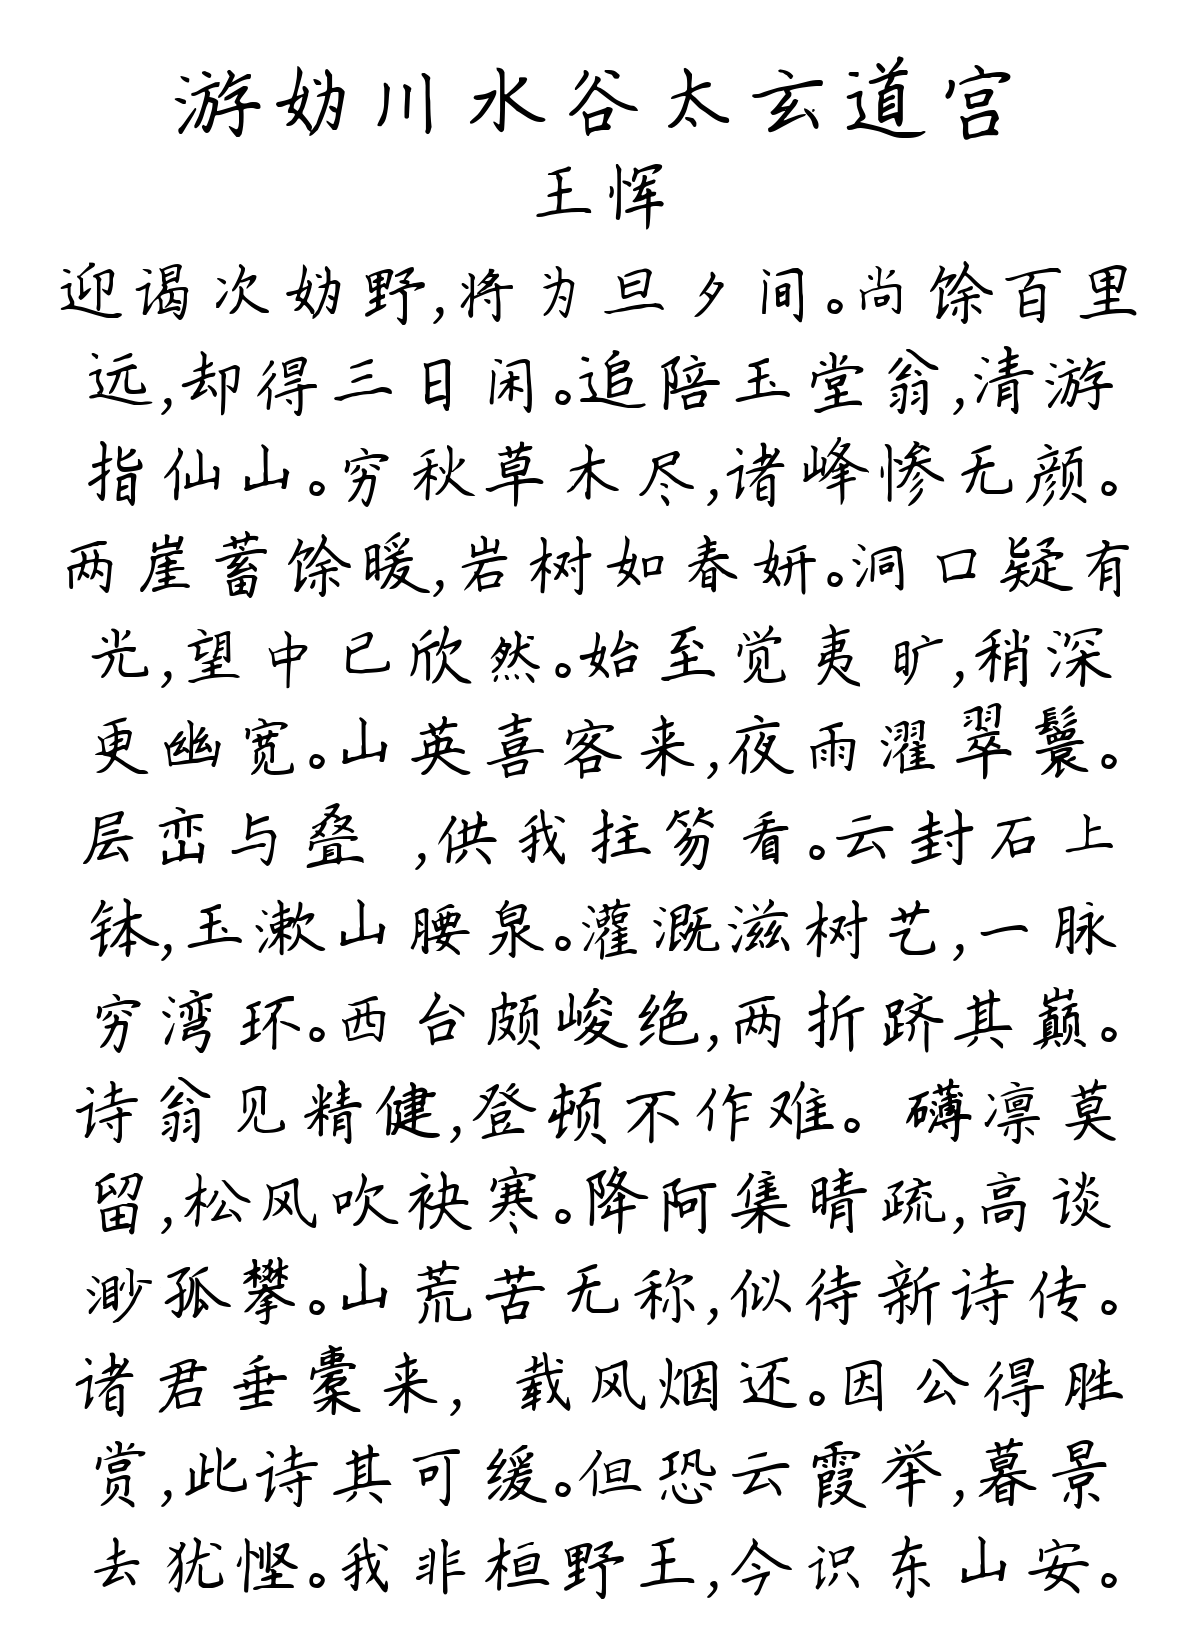 游妫川水谷太玄道宫
王恽
迎谒次妫野,将为旦夕间。尚馀百里
远,却得三日闲。追陪玉堂翁,清游
指仙山。穷秋草木尽,诸峰惨无颜。
两崖蓄馀暖,岩树如春妍。洞口疑有
光,望中已欣然。始至觉夷旷,稍深
更幽宽。山英喜客来,夜雨濯翠鬟。
层峦与叠 ,供我拄笏看。云封石上
钵,玉漱山腰泉。灌溉滋树艺,一脉
穷湾环。西台颇峻绝,两折跻其巅。
诗翁见精健,登顿不作难。礴凛莫
留,松风吹袂寒。降阿集晴疏,高谈
渺孤攀。山荒苦无称,似待新诗传。
诸君垂橐来,载风烟还。因公得胜
赏,此诗其可缓。但恐云霞举,暮景
去犹悭。我非桓野王,今识东山安。